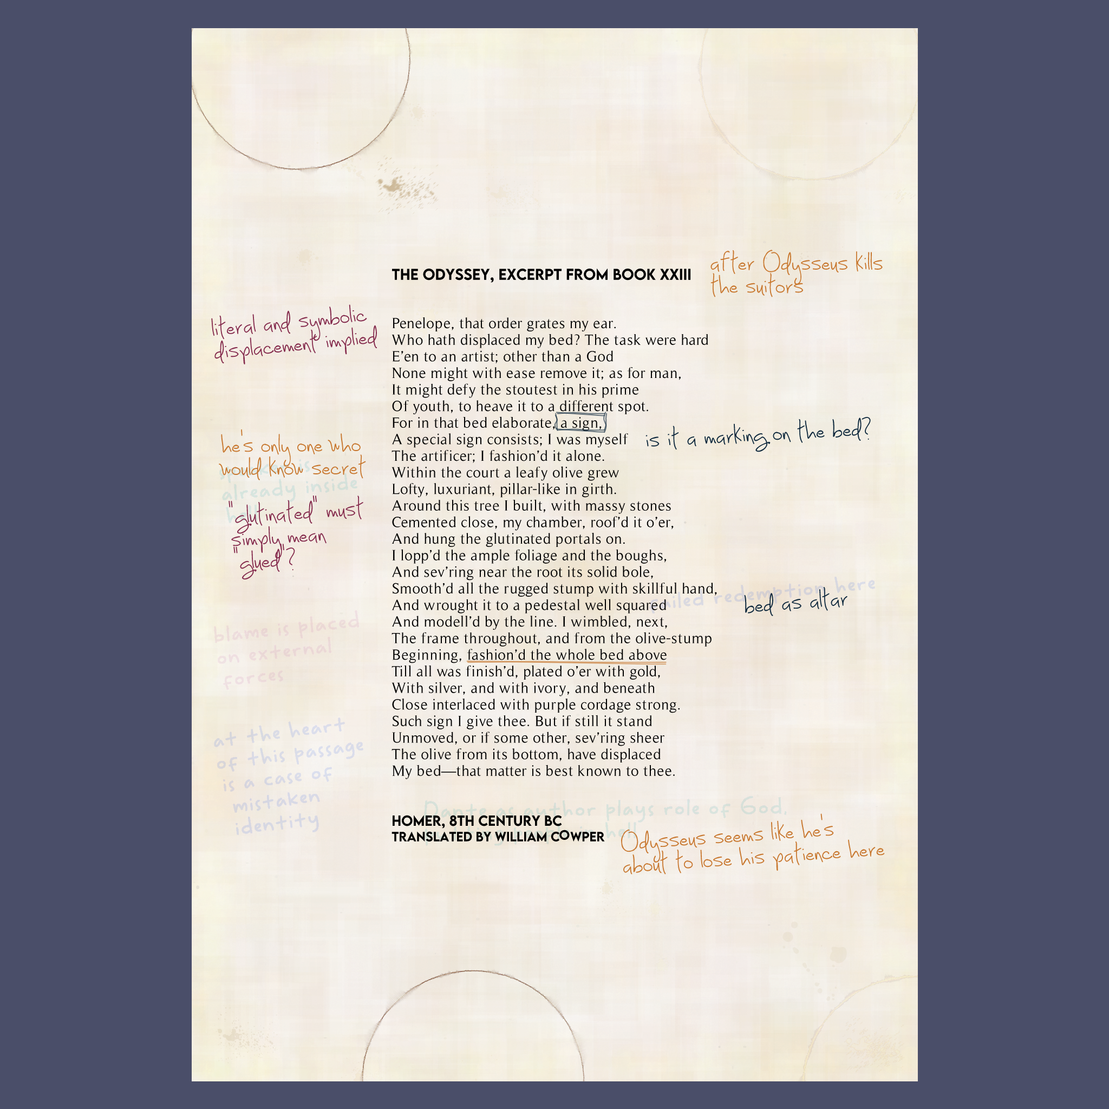 THE ODYSSEY, EXCERPT FROM BOOK XXIII
after Odysseus kills
the suitors
literal and symbolic
displacement implied
Penelope, that order grates my ear.
Who hath displaced my bed? The task were hard
E'en to an artist; other than a God
None might with ease remove it; as for man,
It might defy the stoutest in his prime
Of youth, to heave it to a different spot.
For in that bed elaborate, a sign,
A special sign consists; I was myself
is it a marking on the bed?
The artificer; I fashion'd it alone.
Within the court a leafy olive grew
Lofty, luxuriant, pillar-like in girth.
Around this tree I built, with massy stones
Cemented close, my chamber, roof'd it o'er,
And hung the glutinated portals on.
I lopp'd the ample foliage and the boughs,
And sev'ring near the root its solid bole,
Smooth'd all the rugged stump with skillful hand,
And wrought it to a pedestal well squared
And modell'd by the line. I wimbled, next,
The frame throughout, and from the olive-stump
Beginning, fashion'd the whole bed above
Till all was finish'd, plated o'er with gold,
With silver, and with ivory, and beneath
Close interlaced with purple cordage strong.
Such sign I give thee. But if still it stand
Unmoved, or if some other, sev'ring sheer
The olive from its bottom, have displaced
My bed—that matter is best known to thee.
he's only one who
would know secret
already inside
"glutinated" must
simply mean
"glued"?
failed redemption here
bed as altar
blame is placed
on external
forces
at the heart
of this passage
is a case of
mistaken
identity
Dante as author plays role of God.
hell
HOMER, 8TH CENTURY BC
TRANSLATED BY WILLIAM COWPER
Odysseus seems like he's
about to lose his patience here